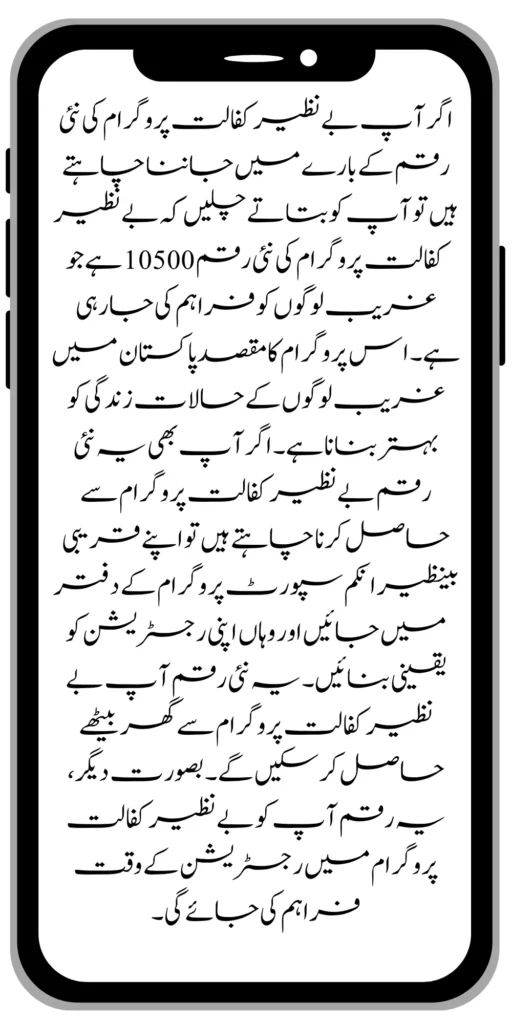 اگر آپ بے نظیر کفالت پروگرام کی نئی
رقم کے بارے میں جاننا چاہتے
ہیں تو آپ کو بتاتے چلیں کہ بے نظیر
کفالت پروگرام کی نئی رقم 10500 ہے جو
غریب لوگوں کو فراہم کی جا رہی
ہے۔ اس پروگرام کا مقصد پاکستان میں
غریب لوگوں کے حالات زندگی کو
بہتر بنانا ہے۔ اگر آپ بھی یہ نئی
رقم بے نظیر کفالت پروگرام سے
حاصل کرنا چاہتے ہیں تو اپنے قریبی
بینظیر انکم سپورٹ پروگرام کے دفتر
میں جائیں اور وہاں اپنی رجسٹریشن کو
یقینی بنائیں۔ یہ نئی رقم آپ بے
نظیر کفالت پروگرام سے گھر بیٹھے
حاصل کر سکیں گے۔ بصورت دیگر،
یہ رقم آپ کو بے نظیر کفالت
پروگرام میں رجسٹریشن کے وقت
فراہم کی جائے گی۔